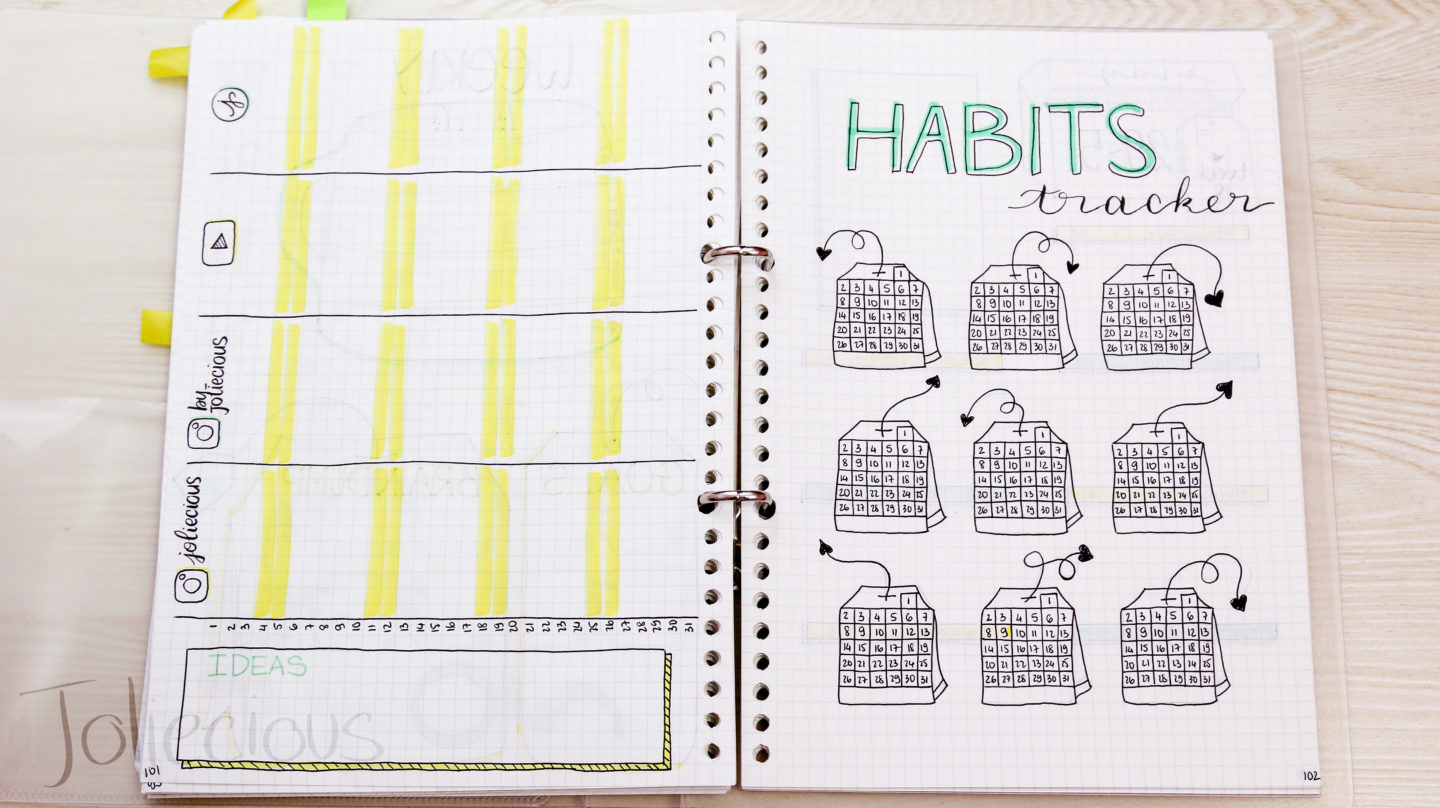 by-
joliecious
joliecious
1 2 3 4 5 6 7 8 9 10 11 12 13 14 15 16 17 18 19 20 21 22 23 24 25 26 27 28 29 30 31
IDEAS
Joliecious
101
HABITS
tracker
1
2 3 4 5 6 7
8 9 10 11 12 13
14 15 16 17 18 19
20 21 22 23 24 25
26 27 28 29 30 31
1
2 3 4 5 6 7
8 9 10 11 12 13
14 15 16 17 18 19
20 21 22 23 24 25
26 27 28 29 30 31
1
2 3 4 5 6 7
8 9 10 11 12 13
14 15 16 17 18 19
20 21 22 23 24 25
26 27 28 29 30 31
1
2 3 4 5 6 7
8 9 10 11 12 13
14 15 16 17 18 19
20 21 22 23 24 25
26 27 28 29 30 31
1
2 3 4 5 6 7
8 9 10 11 12 13
14 15 16 17 18 19
20 21 22 23 24 25
26 27 28 29 30 31
1
2 3 4 5 6 7
8 9 10 11 12 13
14 15 16 17 18 19
20 21 22 23 24 25
26 27 28 29 30 31
1
2 3 4 5 6 7
8 9 10 11 12 13
14 15 16 17 18 19
20 21 22 23 24 25
26 27 28 29 30 31
1
2 3 4 5 6 7
8 9 10 11 12 13
14 15 16 17 18 19
20 21 22 23 24 25
26 27 28 29 30 31
1
2 3 4 5 6 7
8 9 10 11 12 13
14 15 16 17 18 19
20 21 22 23 24 25
26 27 28 29 30 31
102